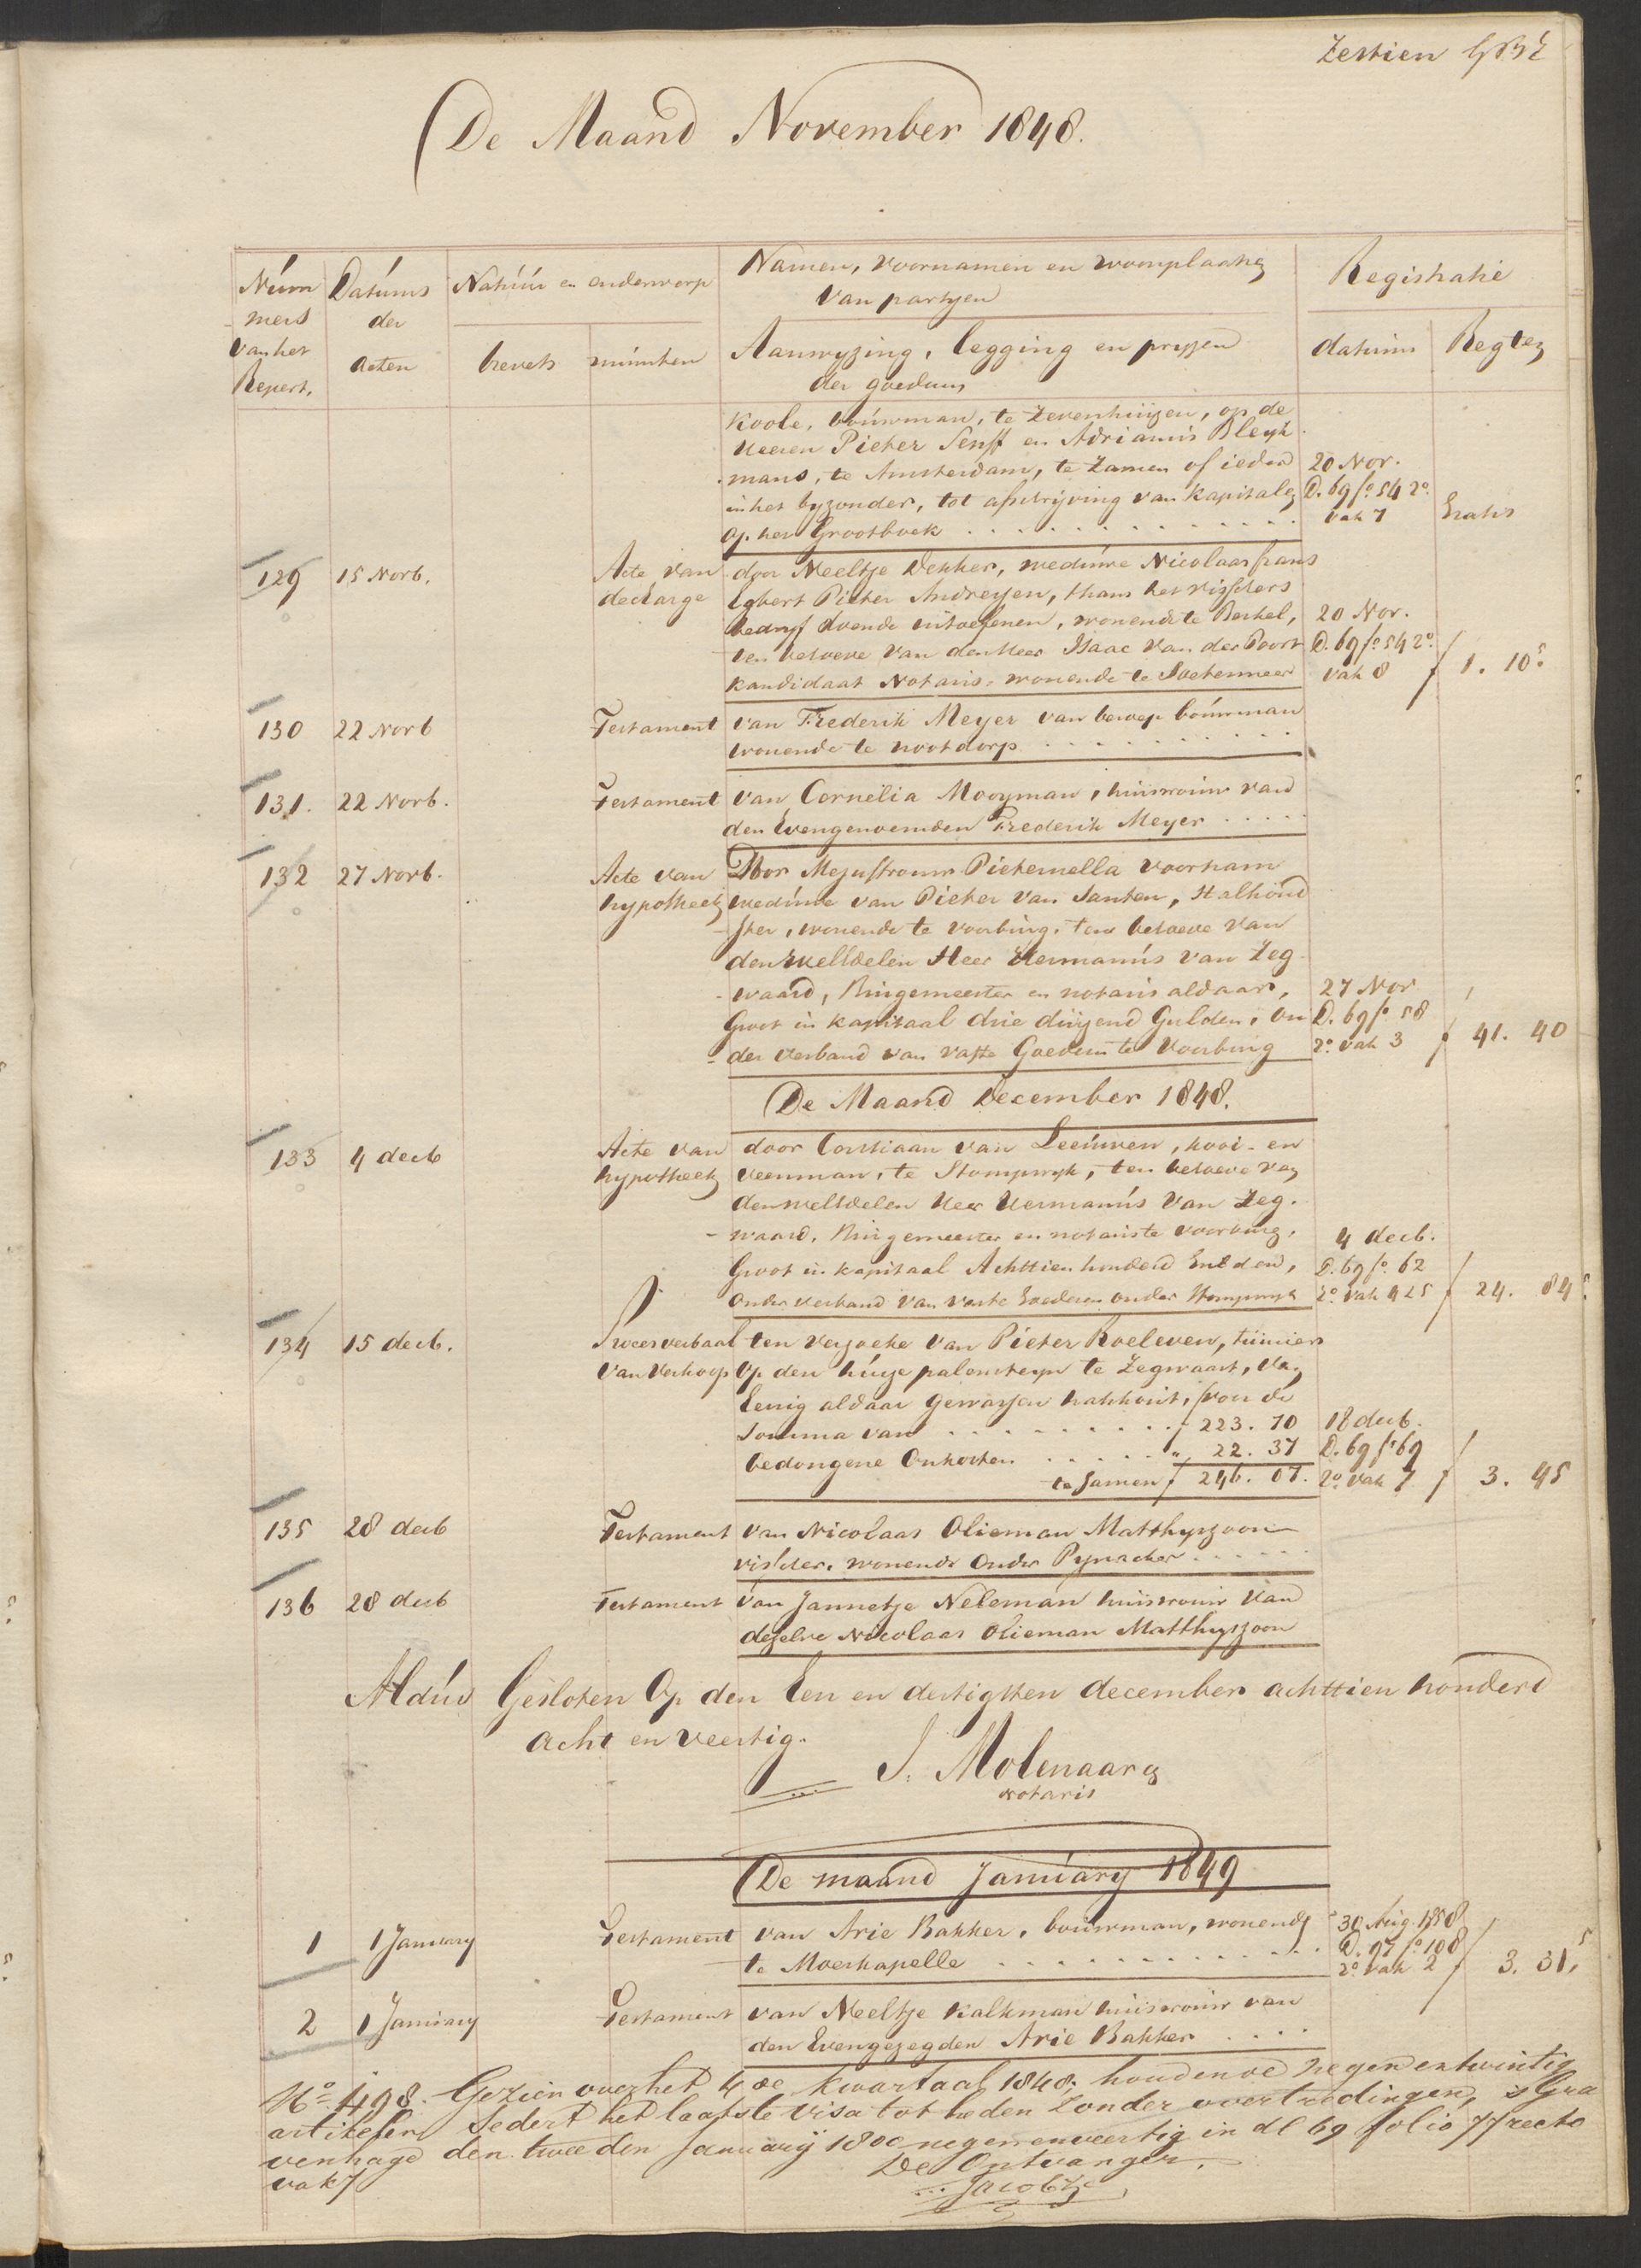 Zestien
De Maand November 1848.
Num Datums Natuur en onderwerp Namen, voornamen en woonplaatsen Registratie
mers der van partyen
van het acten brevets minuten Aanwyzing, legging en pryzen datums Regten
Repert. der goederen
Koole, bouwman, te Zevenhuizen, op de
Heeren Pieter Senff en Adrianus Bleyk
mans, te Amsterdam, te Zamen of ieder 20 Nov.
in het byzonder, tot afschrijving van Kapitalen D. 69 fo. 54 2o.
op het Grootboek vak 7 Gratis
129 15 Novb. Acte van door Neeltje Dekker, weduwe Nicolaas frans
decharge Egbert Pieter Andreyen, thans het visschers
bedryf doende uitoefenen, wonende te Berkel, 20 Nov.
ten behoeve van den Heer Isaac van der Poort D. 69 fo. 54 2o.
kandidaat Notaris, wonende te Soetermeer vak 8 f 1. 10 5.
130 22 Novb Testament van Frederik Meyer van beroep bouwman
wonende te nootdorp
131. 22 Novb. Testament van Cornelia Mooyman, huisvrouw van
den Evengenoemden Frederik Meyer
132 27 Novb. Acte van Door Mejuffrouw Pieternella Voorham
hypotheek weduwe van Pieter van Santen, Stalhoud
ster, wonende te voorburg, ten behoeve van
den WelEdelen Heer Hermanus van Zeg
waard, Burgemeester en notaris aldaar, 27 Nov
Groot in kapitaal drie duizend Gulden, on D. 69 fo 58
der verband van vaste Goederen te Voorburg 2o. vak 3 f 41. 40
De Maand December 1848.
133 4 decb Acte van door Corstiaan van Leeuwen, hooi- en
hypotheek veenman, te Stompwyk, ten behoeve van
den welEdelen Heer Hermanus van Zeg
waard, Burgemeester en notaris te voorburg, 4 decb.
Groot in kapitaal Achttien honderd Gulden, D. 69 fo. 62
onder verband van vaste Goederen onder Stompwyk 2o. vak 4 2 5 f 24. 84 5.
134 15 decb. Proces verbaal ten verzoeke van Pieter Roeleven, tuinier
van verkoop op den huize palensteyn te Zegwaart, van
Eenig aldaar gewassen hakhout, voor de
Somma van f 223. 70 18 decb.
bedongene Onkosten " 22. 37 D. 69 fo 69
te Samen f 246. 07. 2o. vak 7 f 3. 45
135 28 decb Testament van Nicolaas Olieman Matthyszoon
visscher, wonende onder Pynacker
136 28 decb Testament van Jannetje Neleman huisvrouw van
dezelve Nicolaas Olieman Matthyszoon
Aldus Gesloten Op den Een en dertigsten december achttien honderd
acht en veertig.
J. Molenaar
notaris
De maand January 1849
1 1 January Testament van Arie Bakker, bouwman, wonende 30 Aug. 1858
te Moerkapelle D. 97 fo 108
2o vak 2 f 3. 31 5
2 1 January Testament van Neeltje Kalkman huisvrouw van
den Evengezegden Arie Bakker
No. 498. Gezien over het 4de kwartaal 1848, houdende negen en twintig
artikelen Sedert het laatste Visa tot heden zonder overtredingen, 's Gra
venhage den tweeden January 1800 negen en veertig in dl 69 folio 77 recto
vak 7
De Ontvanger,